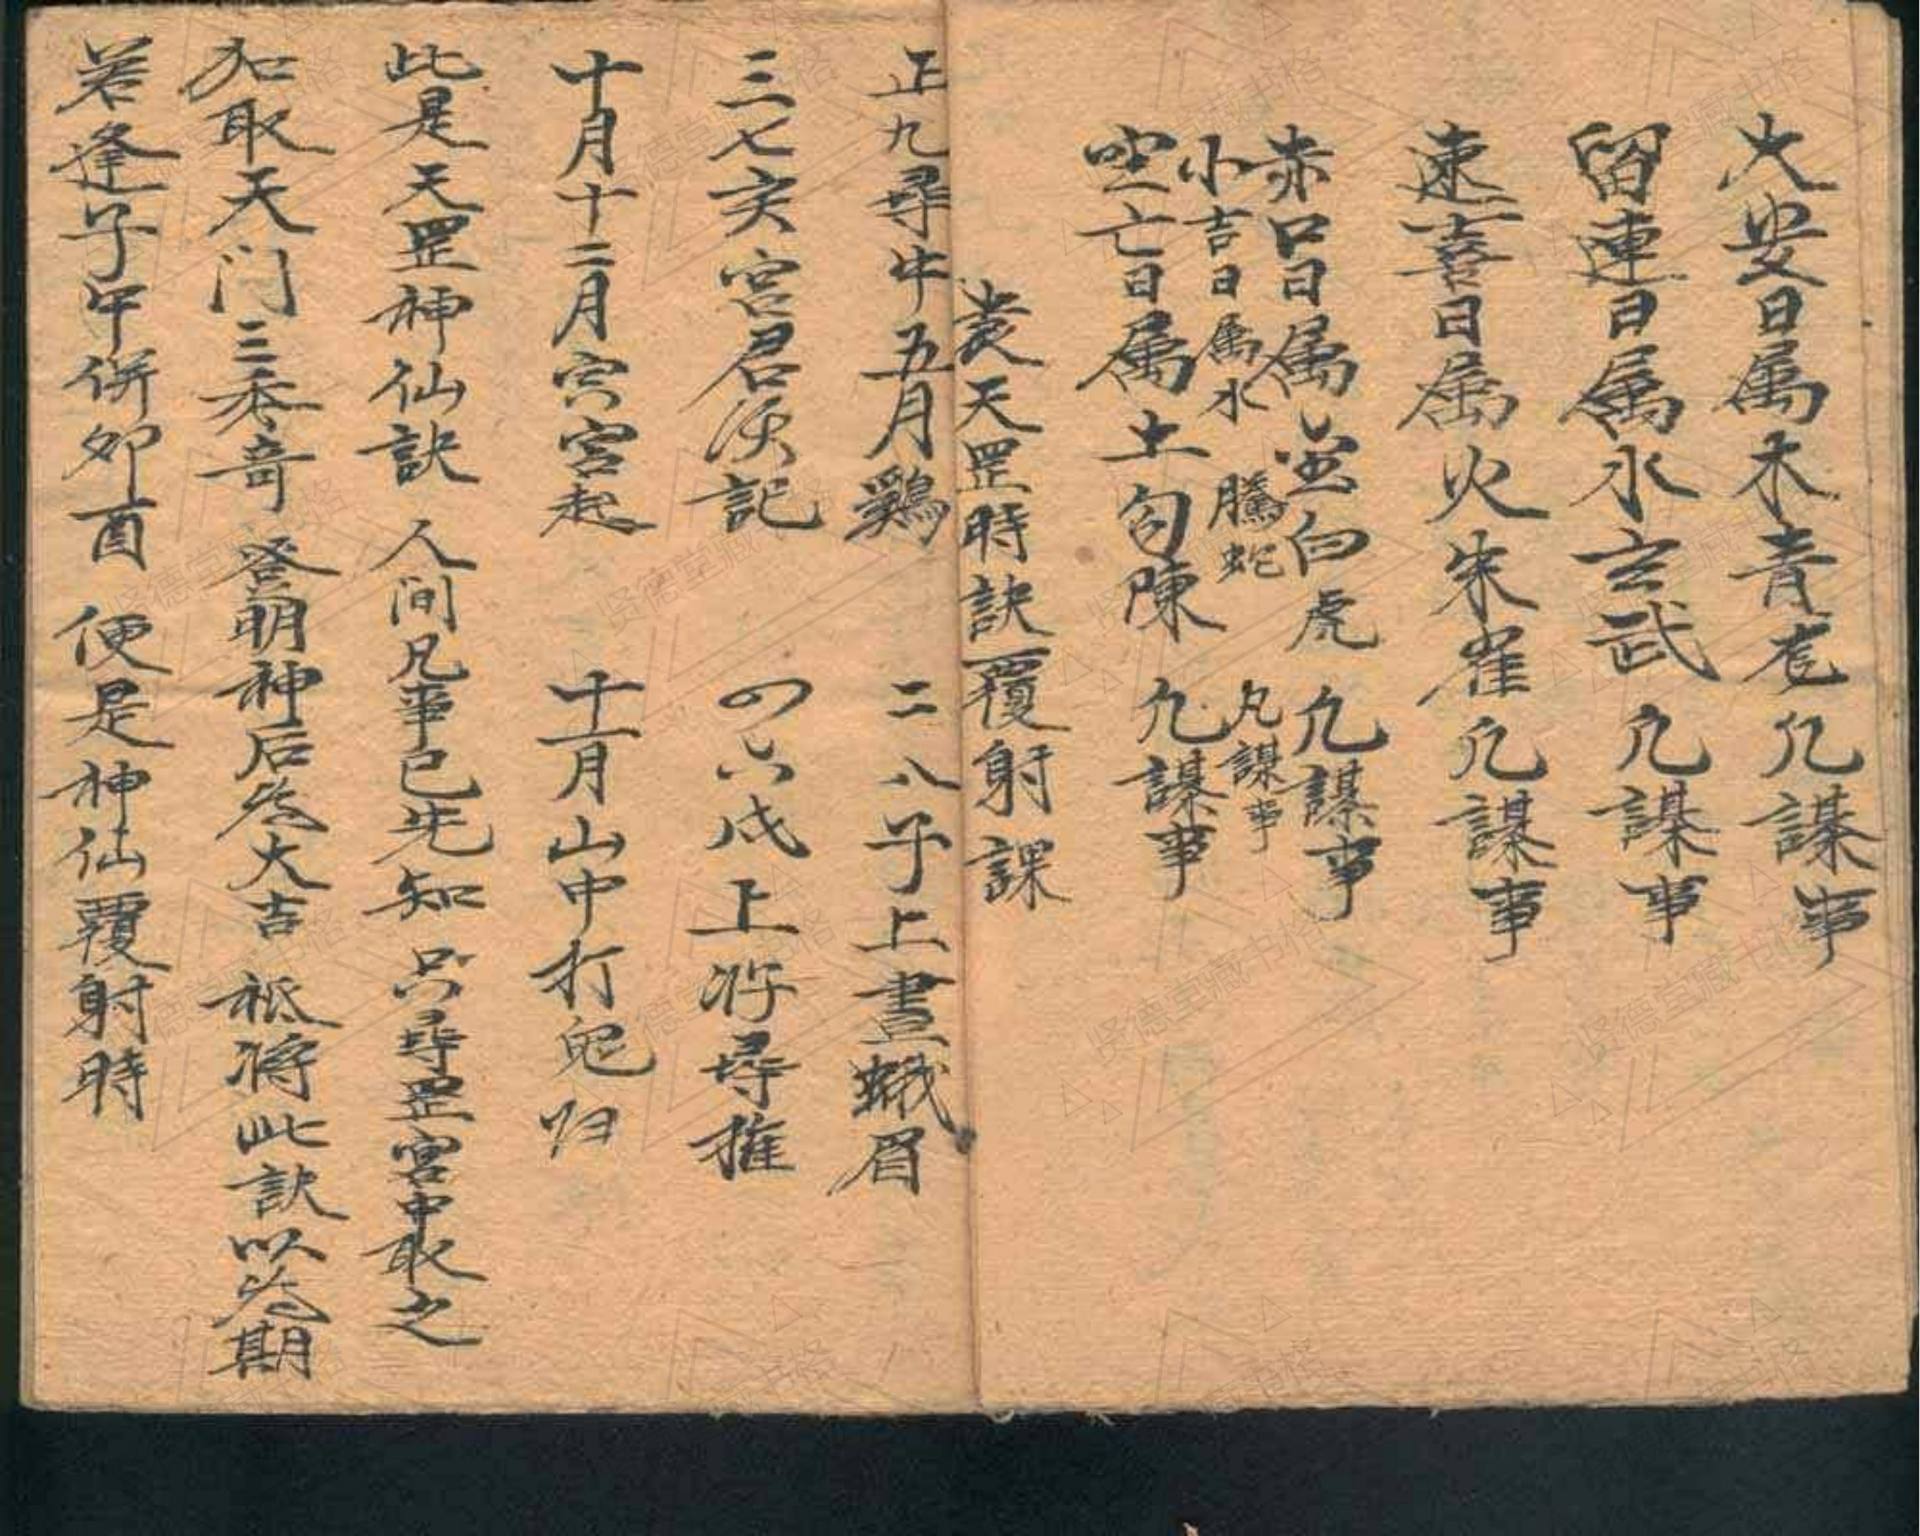 大安日属木青龙 凡謀事
留連日属水玄武 凡謀事
速喜日属火朱雀 凡謀事
赤口日属金白虎 凡謀事
小吉日属水 騰蛇 凡謀事
空亡日属土勾陳 凡謀事
天罡時訣覆射課
正九尋牛五月鷄 二八子上畫蛾眉
三七亥宮君須記 四六戌上将尋推
十月十二月宮起 十一月山中打兔归
此是天罡神仙訣 人间凡事已先知 只尋罡宮中取之
加取天门三奇 登明神后為大吉 祗将此訣以為期
若逢子午併卯酉 便是神仙覆射時
贤德堂藏书格